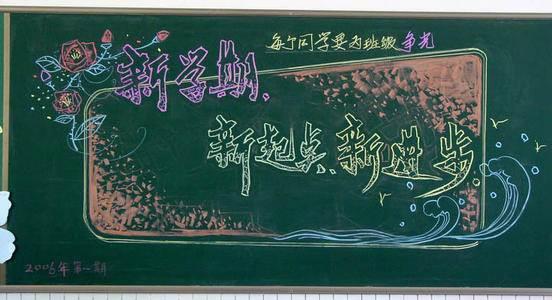 每个同学要为班级争光
新学期、
新起点、新进步
2006年第一期